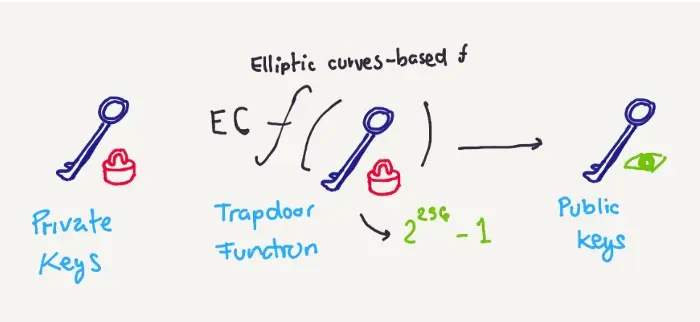 Elliptic curves-based f
EC f ( )
Private
Keys
Trapdoor
Function
2^256 - 1
Public
Keys